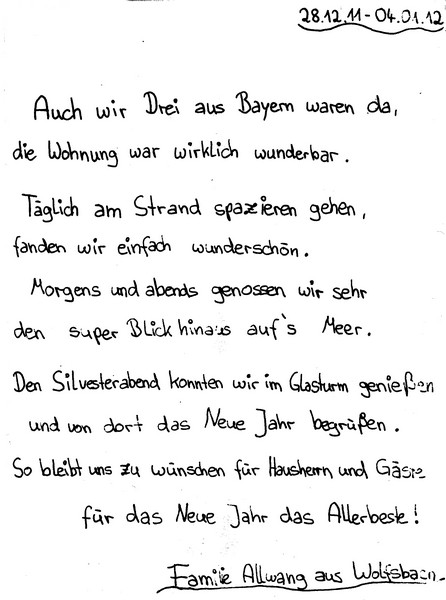 28.12.11 - 04.01.12
Auch wir Drei aus Bayern waren da,
die Wohnung war wirklich wunderbar.
Täglich am Strand spazieren gehen,
fanden wir einfach wunderschön.
Morgens und abends genossen wir sehr
den super Blick hinaus auf's Meer.
Den Silvesterabend konnten wir im Glasturm genießen
und von dort das Neue Jahr begrüßen.
So bleibt uns zu wünschen für Hausherrn und Gäste
für das Neue Jahr das Allerbeste!
Familie Allwang aus